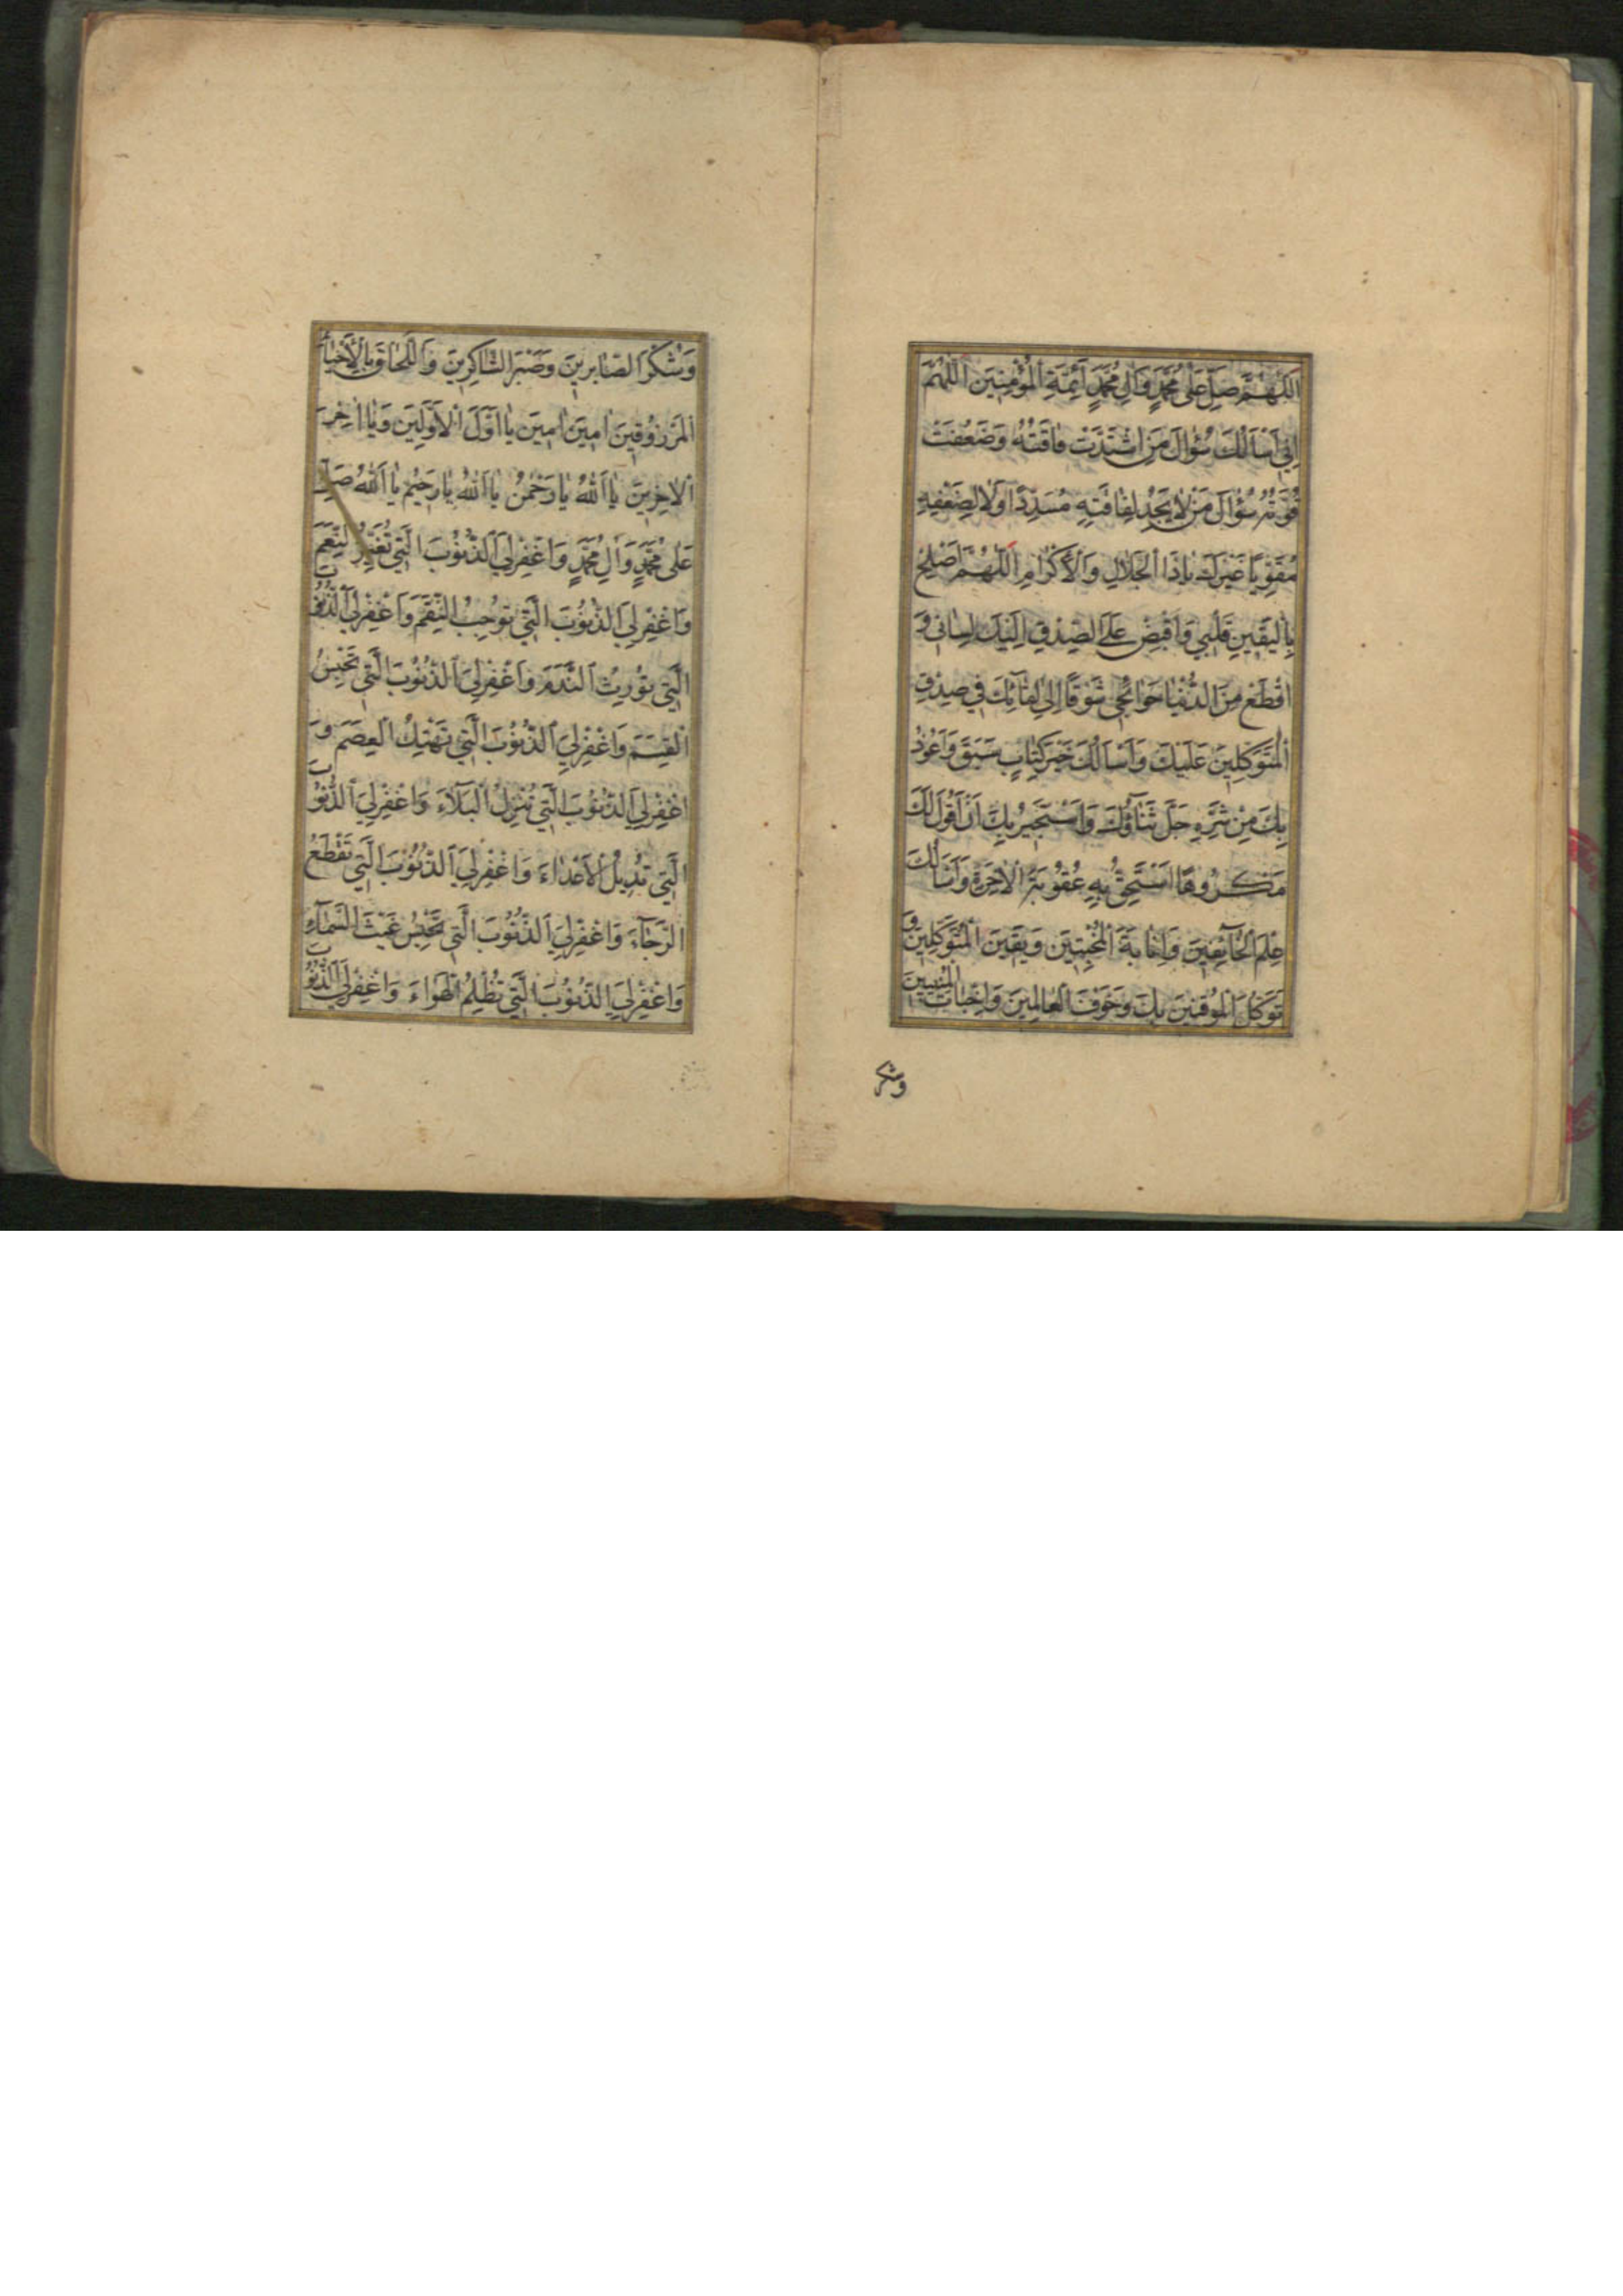 اَللّٰهُمَّ صَلِّ عَلٰى مُحَمَّدٍ وَاٰلِ مُحَمَّدٍ اَئِمَّةِ الْمُؤْمِنِينَ اَللّٰهُمَّ
اِنِّي اَسْاَلُكَ سُؤٰالَ مَنِ اشْتَدَّتْ فٰاقَتُهُ وَضَعُفَتْ
قُوَّتُهُ سُؤٰالَ مَنْ لٰا يَجِدُ لِفٰاقَتِهِ مُسَدِّدًا وَلٰا لِضَعْفِهِ
مُقَوِّيًا غَيْرَكَ يٰا ذَا الْجَلٰالِ وَالْاِكْرٰامِ اَللّٰهُمَّ اَصْلِحْ
بِالْيَقِينِ قَلْبِي وَاقْبِضْ عَلَى الصِّدْقِ اِلَيْكَ لِسٰانِي وَ
اقْطَعْ مِنَ الدُّنْيٰا حَوٰائِجِي شَوْقًا اِلٰى لِقٰآئِكَ فِي صِدْقِ
الْمُتَوَكِّلِينَ عَلَيْكَ وَاَسْاَلُكَ خَيْرَ كِتٰابٍ سَبَقَ وَاَعُوذُ
بِكَ مِنْ شَرِّهِ جَلَّ ثَنٰآؤُكَ وَاَسْتَجِيرُ بِكَ اَنْ اَقُولَ لَكَ
مَكْرُوهًا اَسْتَحِقُّ بِهِ عُقُوبَةَ الْاٰخِرَةِ وَاَسْاَلُكَ
عِلْمَ الْخٰآئِفِينَ وَاِنٰابَةَ الْمُخْبِتِينَ وَيَقِينَ الْمُتَوَكِّلِينَ وَ
تَوَكُّلَ الْمُوقِنِينَ بِكَ وَخَوْفَ الْعٰالِمِينَ وَاِخْبٰاتَ الْمُنِيبِينَ
وشكر
وَشُكْرَ الصّٰابِرِينَ وَصَبْرَ الشّٰاكِرِينَ وَاللِّحٰاقَ بِالْاَحْيٰآءِ
الْمَرْزُوقِينَ اٰمِينَ اٰمِينَ يٰا اَوَّلَ الْاَوَّلِينَ وَيٰا اٰخِرَ
الْاٰخِرِينَ يٰا اَللّٰهُ يٰا رَحْمٰنُ يٰا اَللّٰهُ يٰا رَحِيمُ يٰا اَللّٰهُ صَلِّ
عَلٰى مُحَمَّدٍ وَاٰلِ مُحَمَّدٍ وَاغْفِرْ لِيَ الذُّنُوبَ الَّتِي تُغَيِّرُ النِّعَمَ
وَاغْفِرْ لِيَ الذُّنُوبَ الَّتِي تُوجِبُ النِّقَمَ وَاغْفِرْ لِيَ الذُّنُوبَ
الَّتِي تُورِثُ النَّدَمَ وَاغْفِرْ لِيَ الذُّنُوبَ الَّتِي تَحْبِسُ
الْقِسَمَ وَاغْفِرْ لِيَ الذُّنُوبَ الَّتِي تَهْتِكُ الْعِصَمَ وَ
اغْفِرْ لِيَ الذُّنُوبَ الَّتِي تُنْزِلُ الْبَلٰآءَ وَاغْفِرْ لِيَ الذُّنُوبَ
الَّتِي تُدِيلُ الْاَعْدٰاءَ وَاغْفِرْ لِيَ الذُّنُوبَ الَّتِي تَقْطَعُ
الرَّجٰآءَ وَاغْفِرْ لِيَ الذُّنُوبَ الَّتِي تَحْبِسُ غَيْثَ السَّمٰآءِ
وَاغْفِرْ لِيَ الذُّنُوبَ الَّتِي تُظْلِمُ الْهَوٰاءَ وَاغْفِرْ لِيَ الذُّنُوبَ